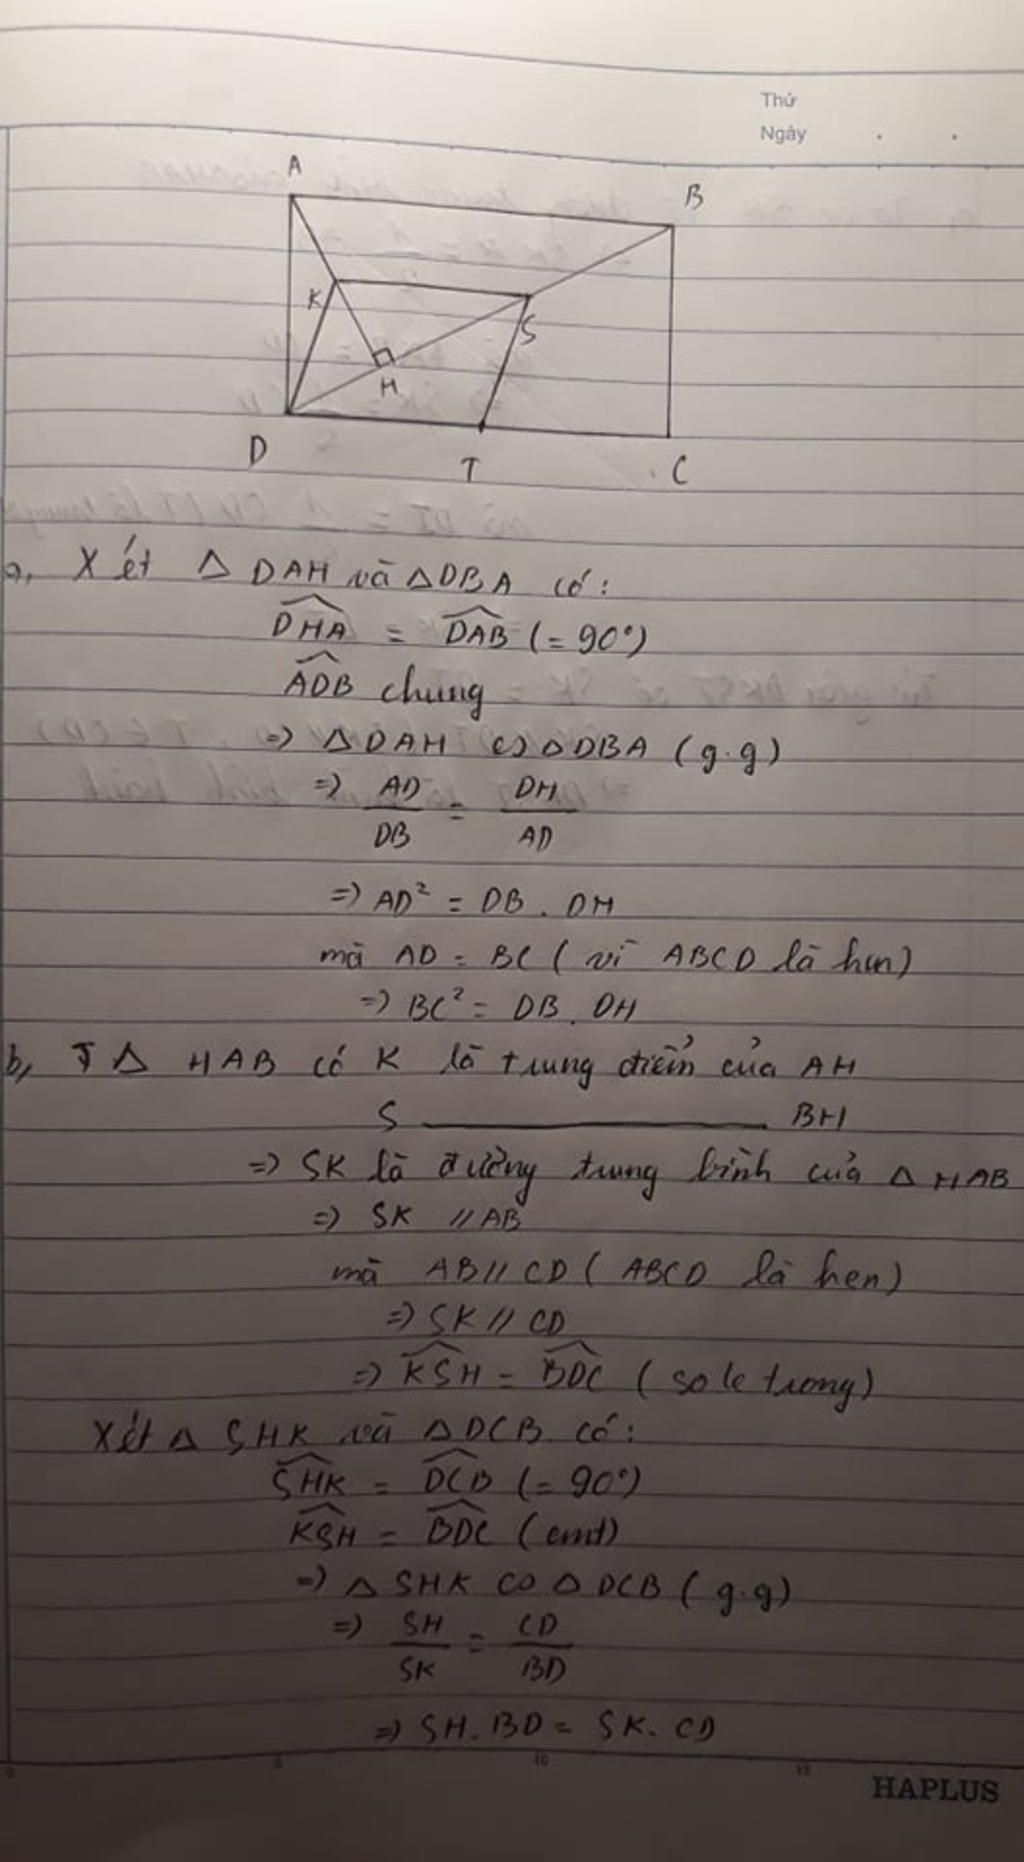 Thứ
Ngày
A
B
K
S
H
D
T
C
a, Xét Δ DAH và Δ DBA có:
DHA = DAB (= 90°)
ADB chung
=> Δ DAH ∽ Δ DBA (g.g)
=> AD/DB = DH/AD
=> AD² = DB . DH
mà AD = BC ( vì ABCD là hcn)
=> BC² = DB . DH
b, Δ HAB có K là trung điểm của AH
S ———— BH
=> SK là đường trung bình của Δ HAB
=> SK // AB
mà AB // CD ( ABCD là hcn)
=> SK // CD
=> KSH = BDC ( so le trong)
Xét Δ SHK và Δ DCB có:
SHK = DCB (= 90°)
KSH = BDC (cmt)
=> Δ SHK ∽ Δ DCB ( g.g)
=> SH/SK = CD/BD
=> SH. BD = SK. CD
5 10 15
HAPLUS